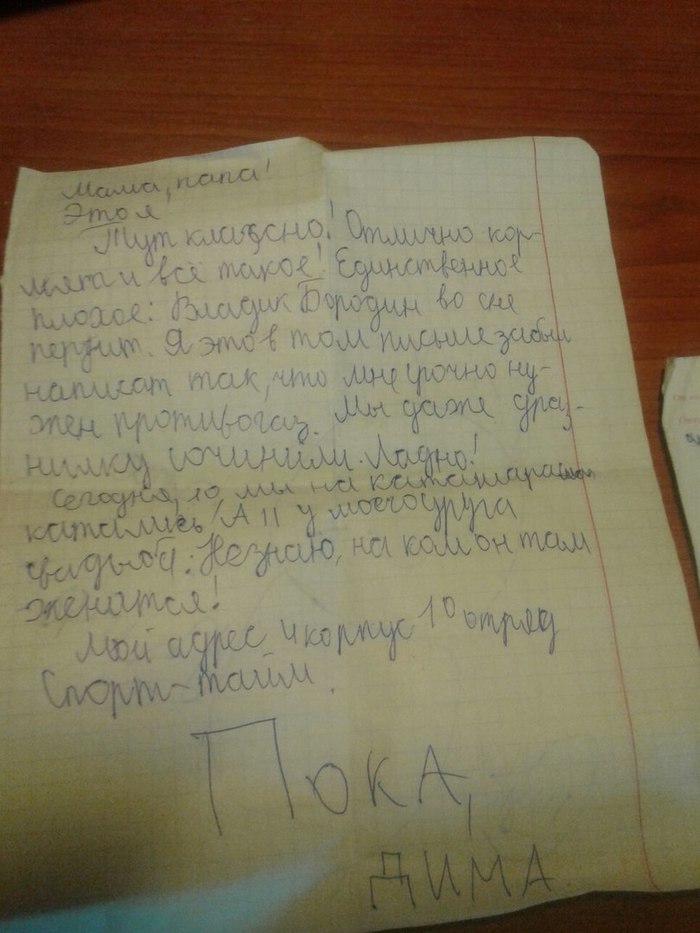 Мама, папа!
Это я
Тут классно! Отлично кор-
мят и всё такое! Единственное
плохое: Владик Бородин во сне
пердит. Я это в том письме забыл
написат так, что мне срочно ну-
жен противогаз. Мы даже драз-
нилку сочинили. Ладно!
Сегодня, 10, мы на катамаранах
катались! А 11 у моего друга
свадьба. Незнаю, на ком он там
женатся!
Мой адрес 4 корпус 10 отряд
Спорт-тайм.
Пока,
Дима